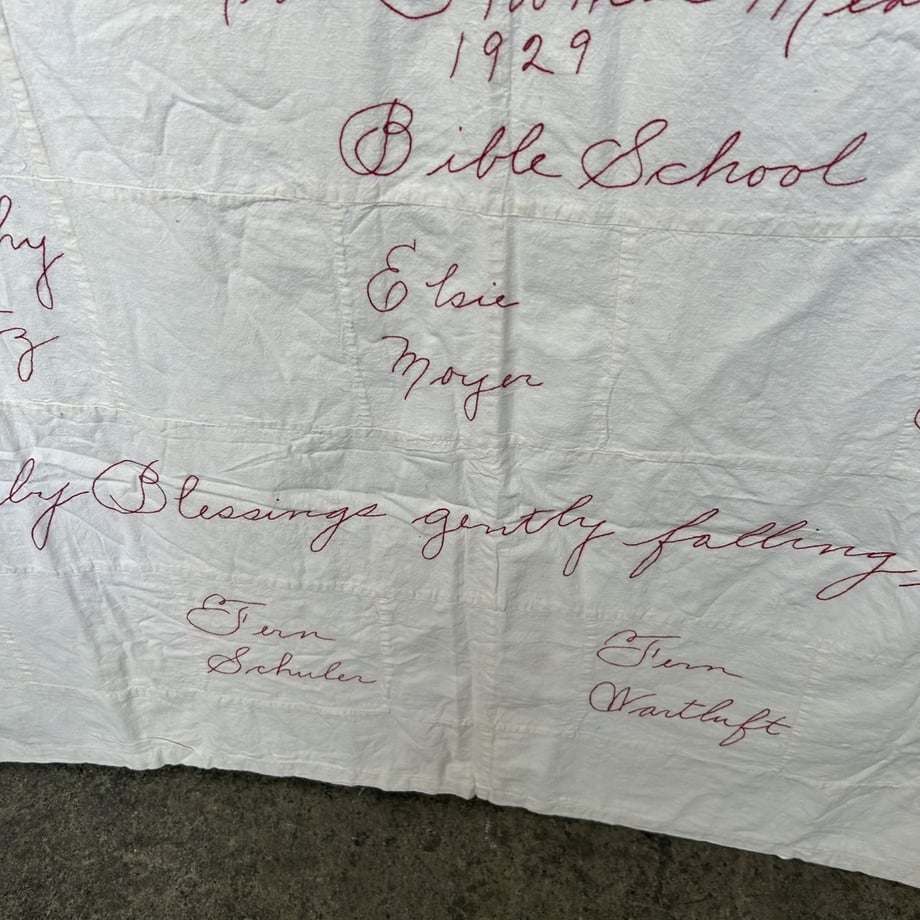 1929
Bible School
Elsie
Moyer
by Blessings gently falling,
Fern
Schuler
Fern
Wartluft